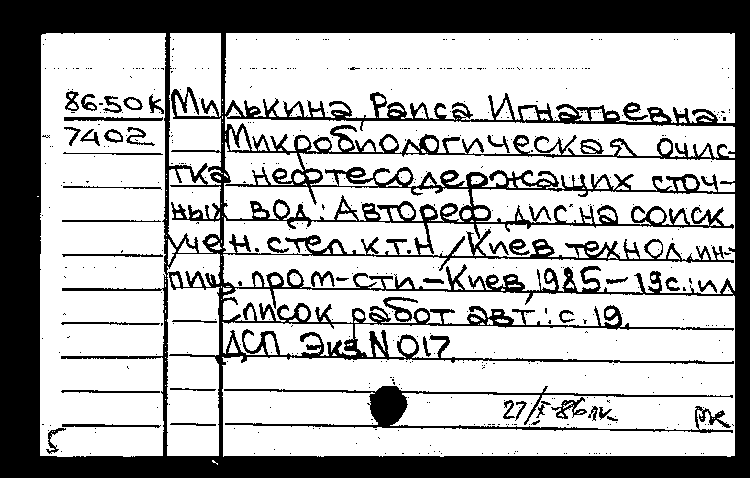 86-50к Милькина, Раиса Игнатьевна.
7402 Микробиологическая очис-
тка нефтесодержащих сточ-
ных вод: Автореф. дис. на соиск.
учен. степ. к.т.н. / Киев. технол. ин-
пищ. пром-сти. – Киев, 1985. – 19 с.: ил
Список работ авт.: с. 19.
ДСП. Экз. N 017.
27/I-86